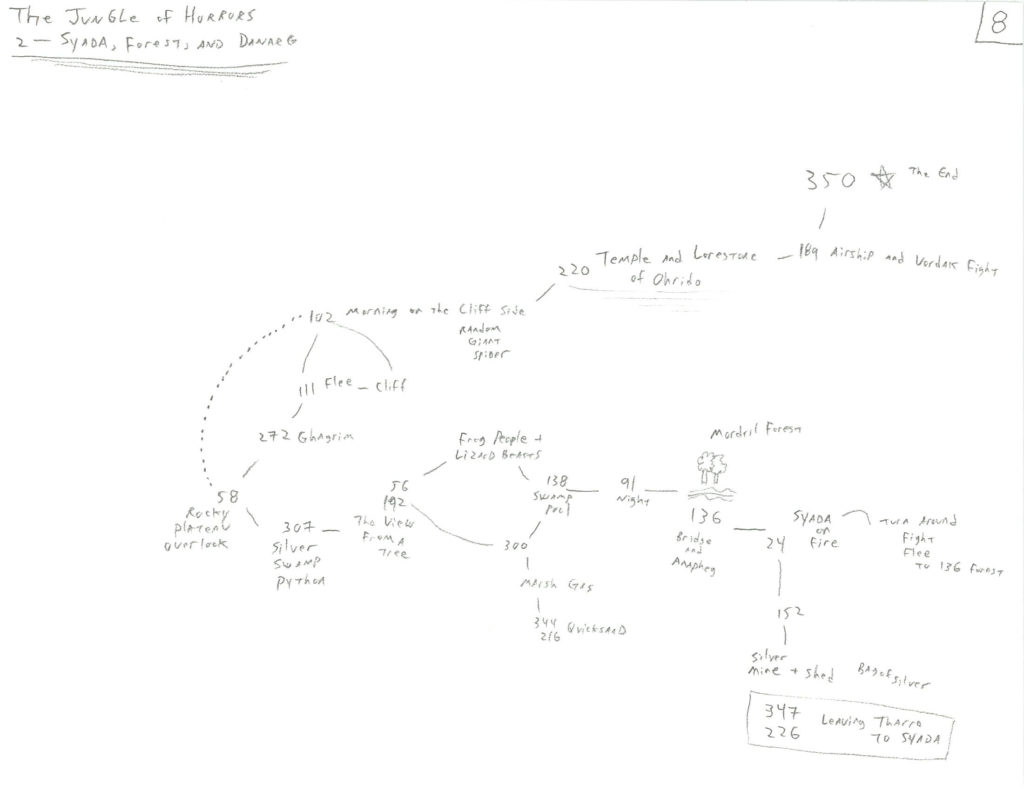 The Jungle of Horrors
8
2 — Syada, Forest, and Danarg
350 The End
189 Airship and Vordak Fight
220 Temple and Lorestone
of Ohrido
102 Morning on the Cliff Side
Random
Giant
Spider
111 Flee — Cliff
272 Ghagrim
58
Rocky
Plateau
Overlook
307
Silver
Swamp
Python
56
192
The View
From A
Tree
Frog People +
Lizard Beasts
138
Swamp
Pool
300
Marsh Gas
344
216 Quicksand
91
Night
Mordril Forest
136
Bridge
and
Anapheg
Syada
on
Fire
24
Turn Around
Fight
Flee
To 136 Forest
152
Silver
Mine + Shed
Bag of
Silver
347
226
Leaving Tharro
To Syada